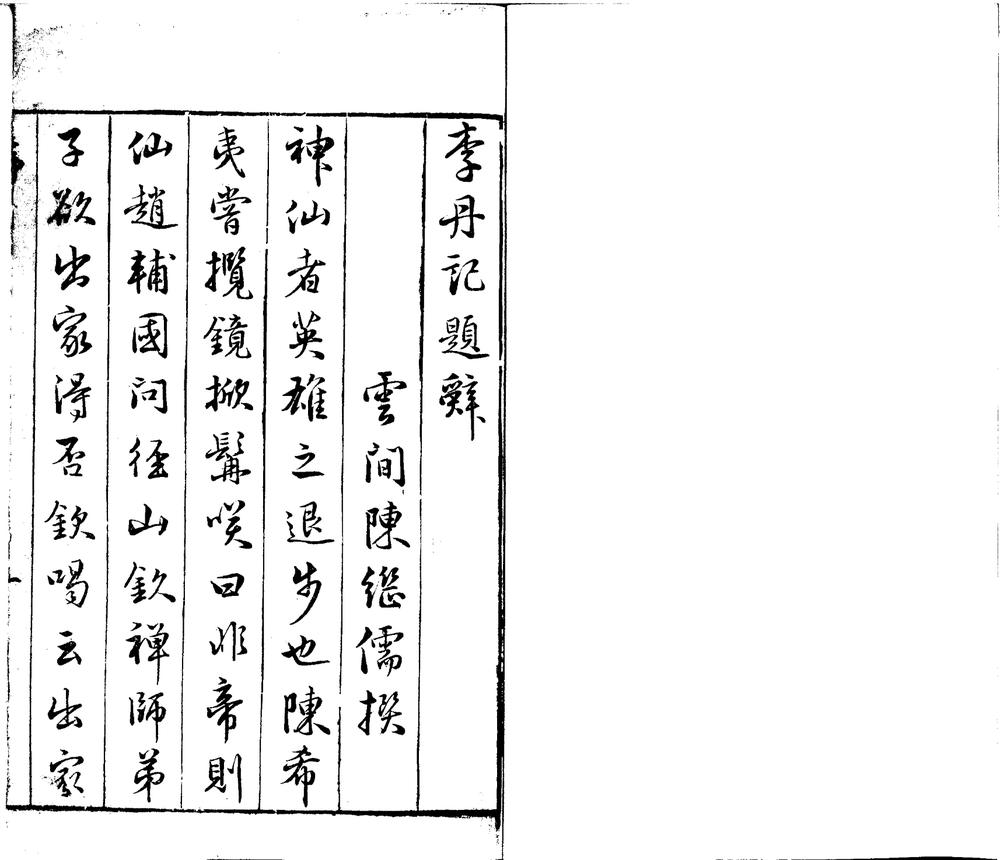 李丹記題辭
雲間陳繼儒撰
神仙者英雄之退步也陳希
夷嘗攬鏡掀髯咲曰非帝則
仙趙輔國问徑山欽禅師弟
子欲出家得否欽喝云出家